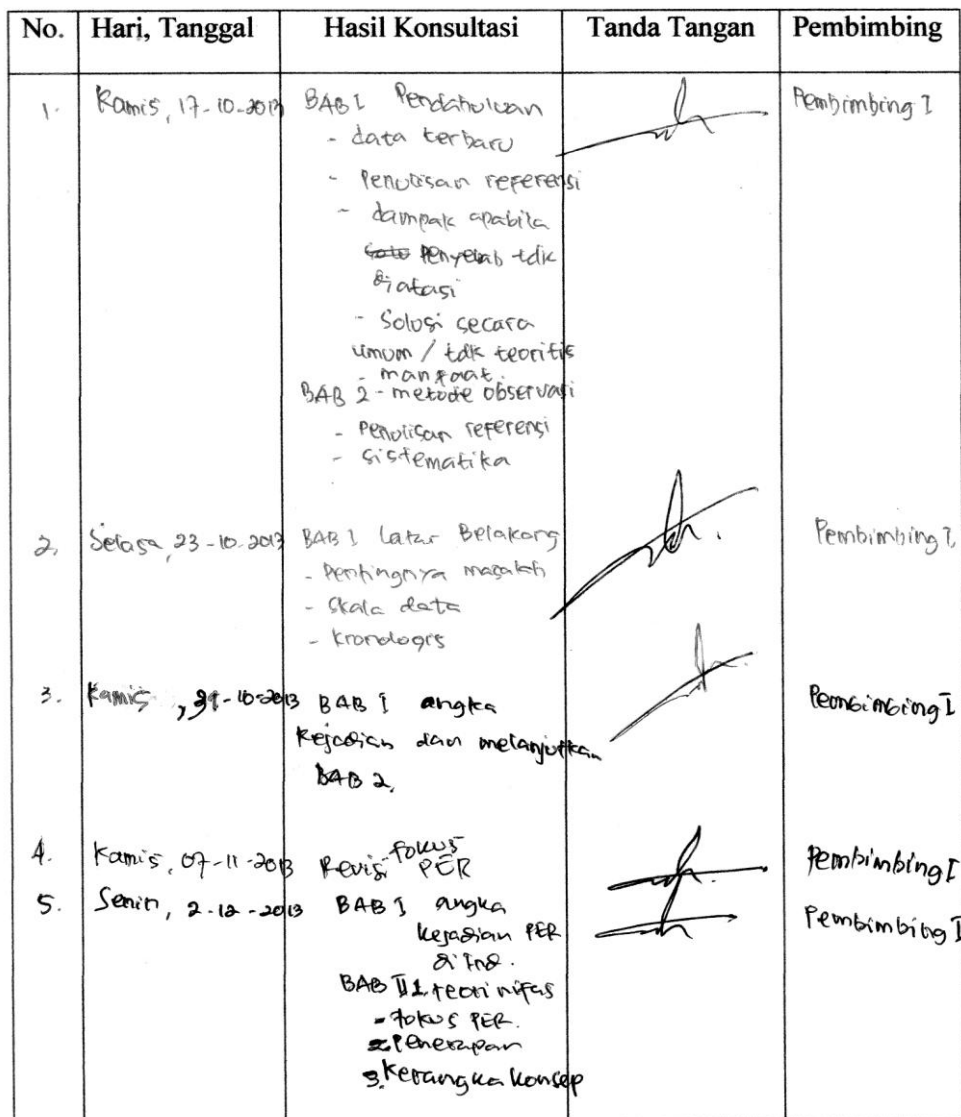 No. Hari, Tanggal Hasil Konsultasi Tanda Tangan Pembimbing
1. Kamis, 17-10-2013 BAB I Pendahuluan Pembimbing I
- data terbaru
- Penulisan referensi
- dampak apabila
penyebab tdk
diatasi
- Solusi secara
umum / tdk teoritis
- manfaat.
BAB 2 - metode observasi
- Penulisan referensi
- sistematika
2. Selasa, 23-10-2013 BAB I Latar Belakang Pembimbing I
- Pentingnya masalah
- Skala data
- kronologis
3. Kamis, 31-10-2013 BAB I angka Pembimbing I
kejadian dan melanjutkan
BAB 2.
4. Kamis, 07-11-2013 Revisi fokus PER Pembimbing I
5. Senin, 2-12-2013 BAB I angka Pembimbing I
kejadian PER
di Ind.
BAB II 1. teori nifas
- fokus PER.
2. Penerapan
3. Kerangka konsep